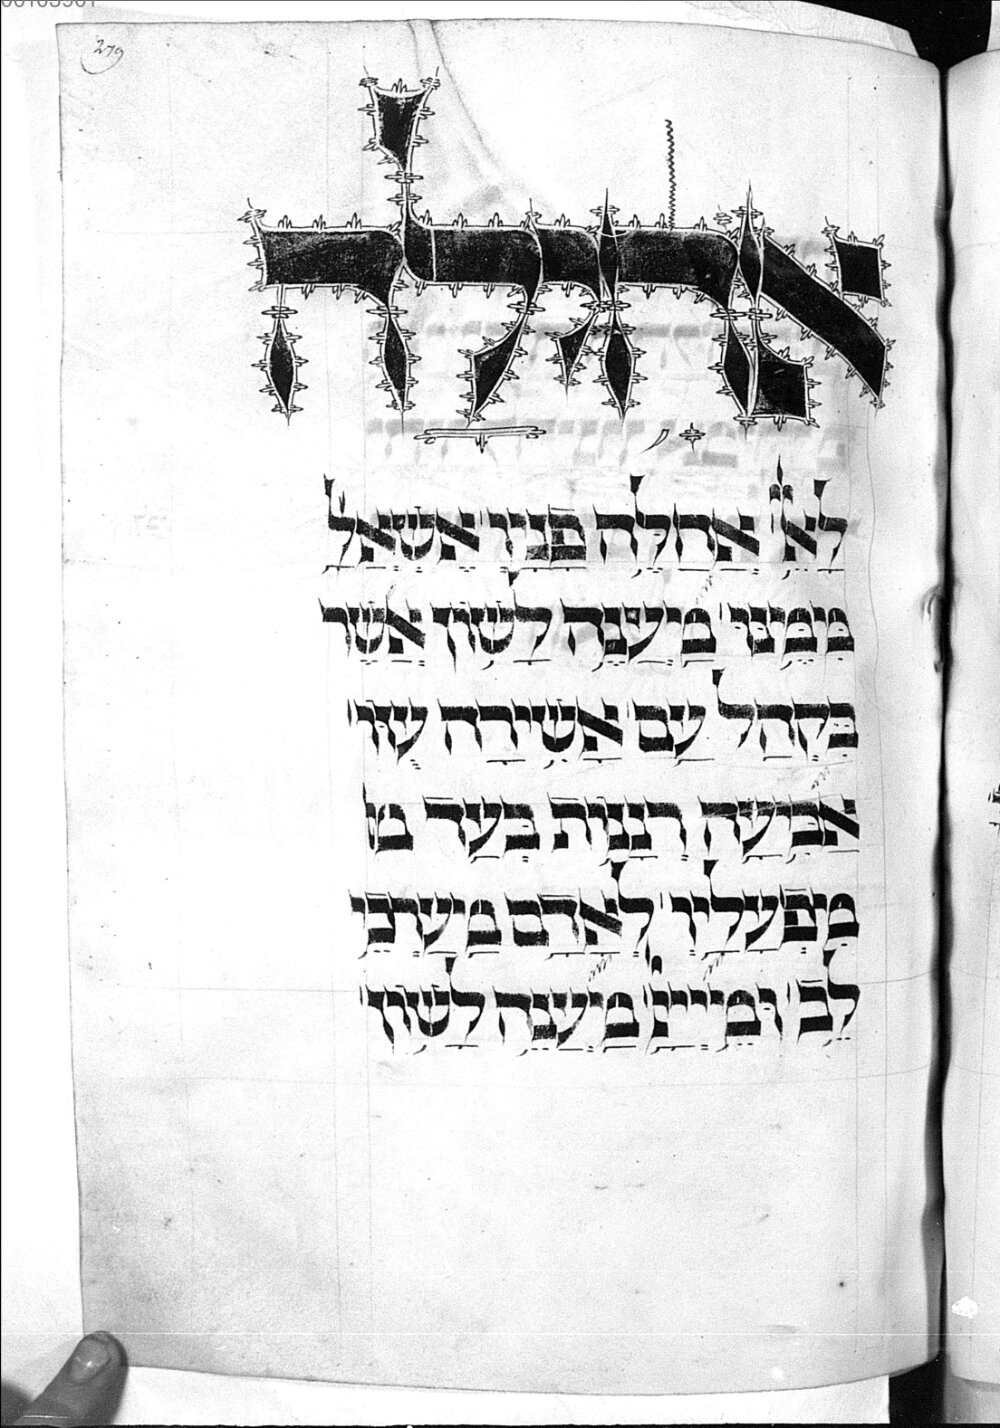 279
אוחילה
לאל אחלה פניו אשאל
ממנו מענה לשון אשר
בקהל עם אשירה עוזו
אביעה רננות בעד מ
מפעליו לאדם מערכי
לב ומיי מענה לשון